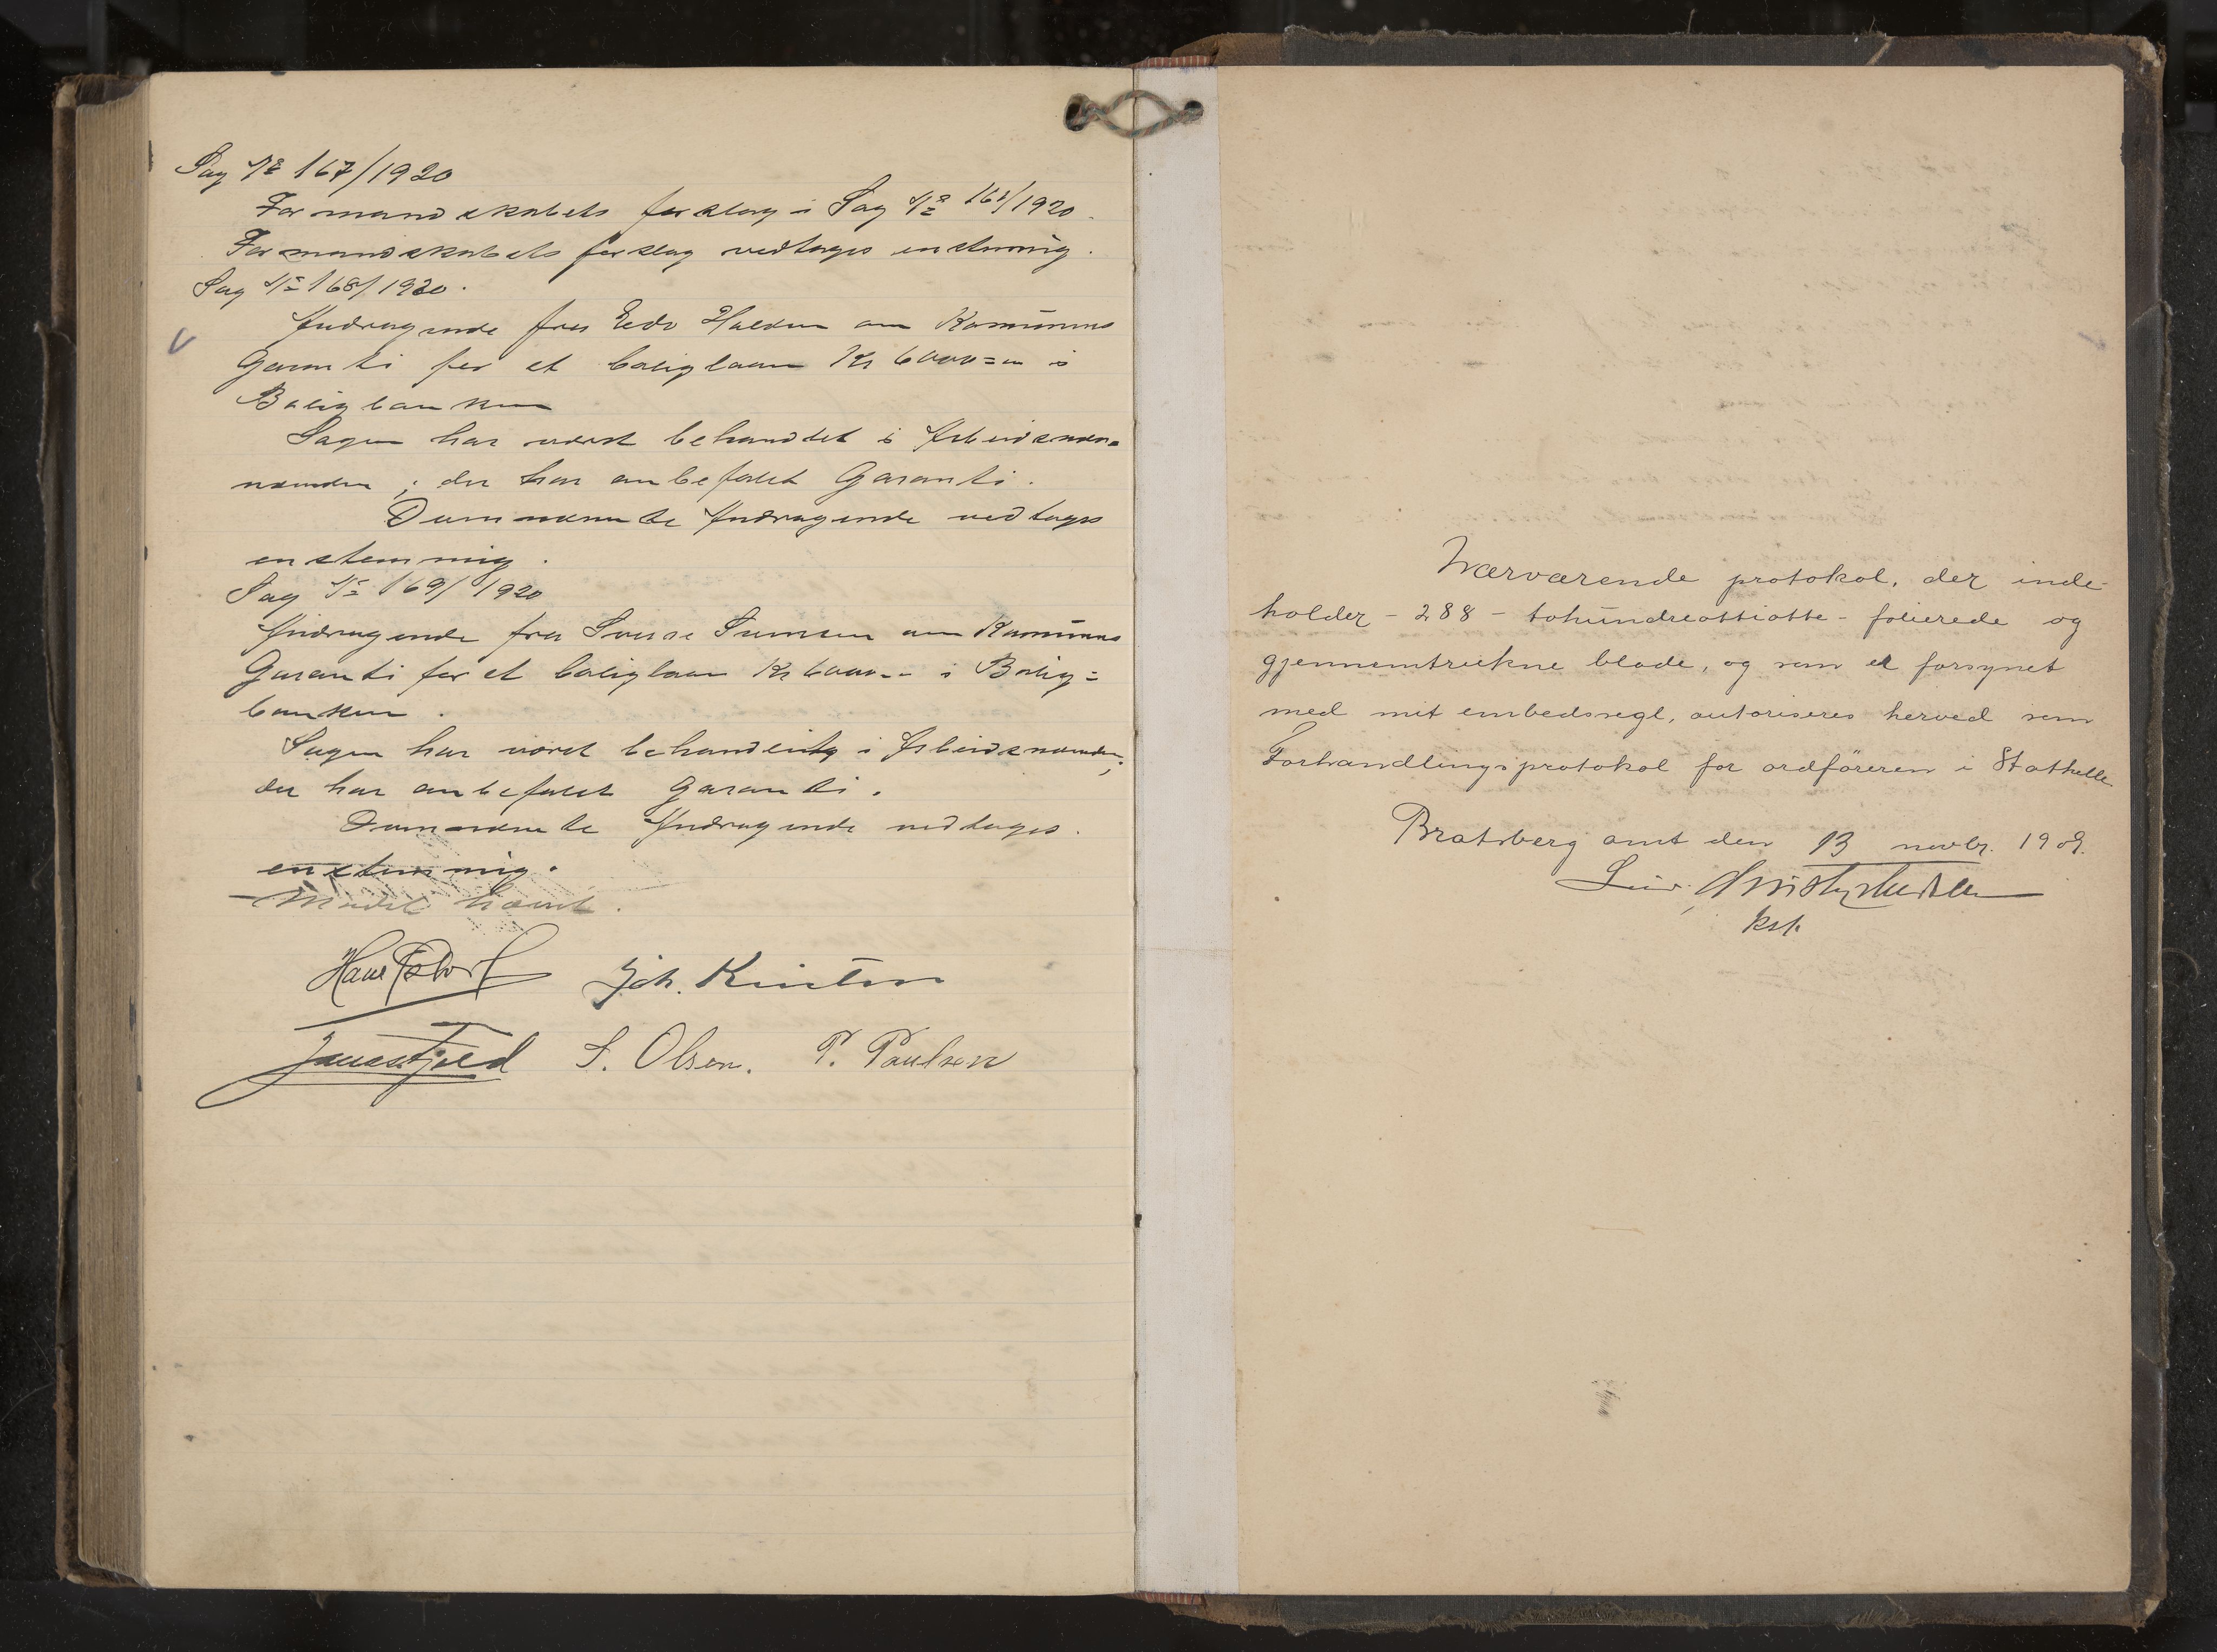 Sag No 167/1920
Formandskabets forslag i Sag No /1920.
Formandskabets forslag vedtages enstemmig.
Sag No 168/1920.
Andragende fra Edv Halvorsen om Kommunens
Garanti for et boliglaan Kr 6000=00 i
Boligbanken
Sagen har været behandlet i Arbeids
nævnden; der har anbefalet Garanti.
Dennævnte Andragende vedtages
enstemmig.
Sag No 169/1920
Andragende fra Sverre om Kommunens
Garanti for et boliglaan Kr 6000.- i Bolig=
banken.
Sagen har været behandlet i Arbeidsnævnden;
der har anbefalet Garanti.
Dennævnte Andragende vedtages
enstemmig.
Mødet hævet.
Joh.
S. Olsen. P. Paulsen
Nærværende protokol, der inde-
holder - 288 - tohundreottiotte - folierede og
gjennemtrukne blade, og som er forsynet
med mit embedssegl, autoriseres herved som
Forhandlingsprotokol for ordføreren i Stathelle
Bratsberg amt den 13 novbr. 1909.
kst.